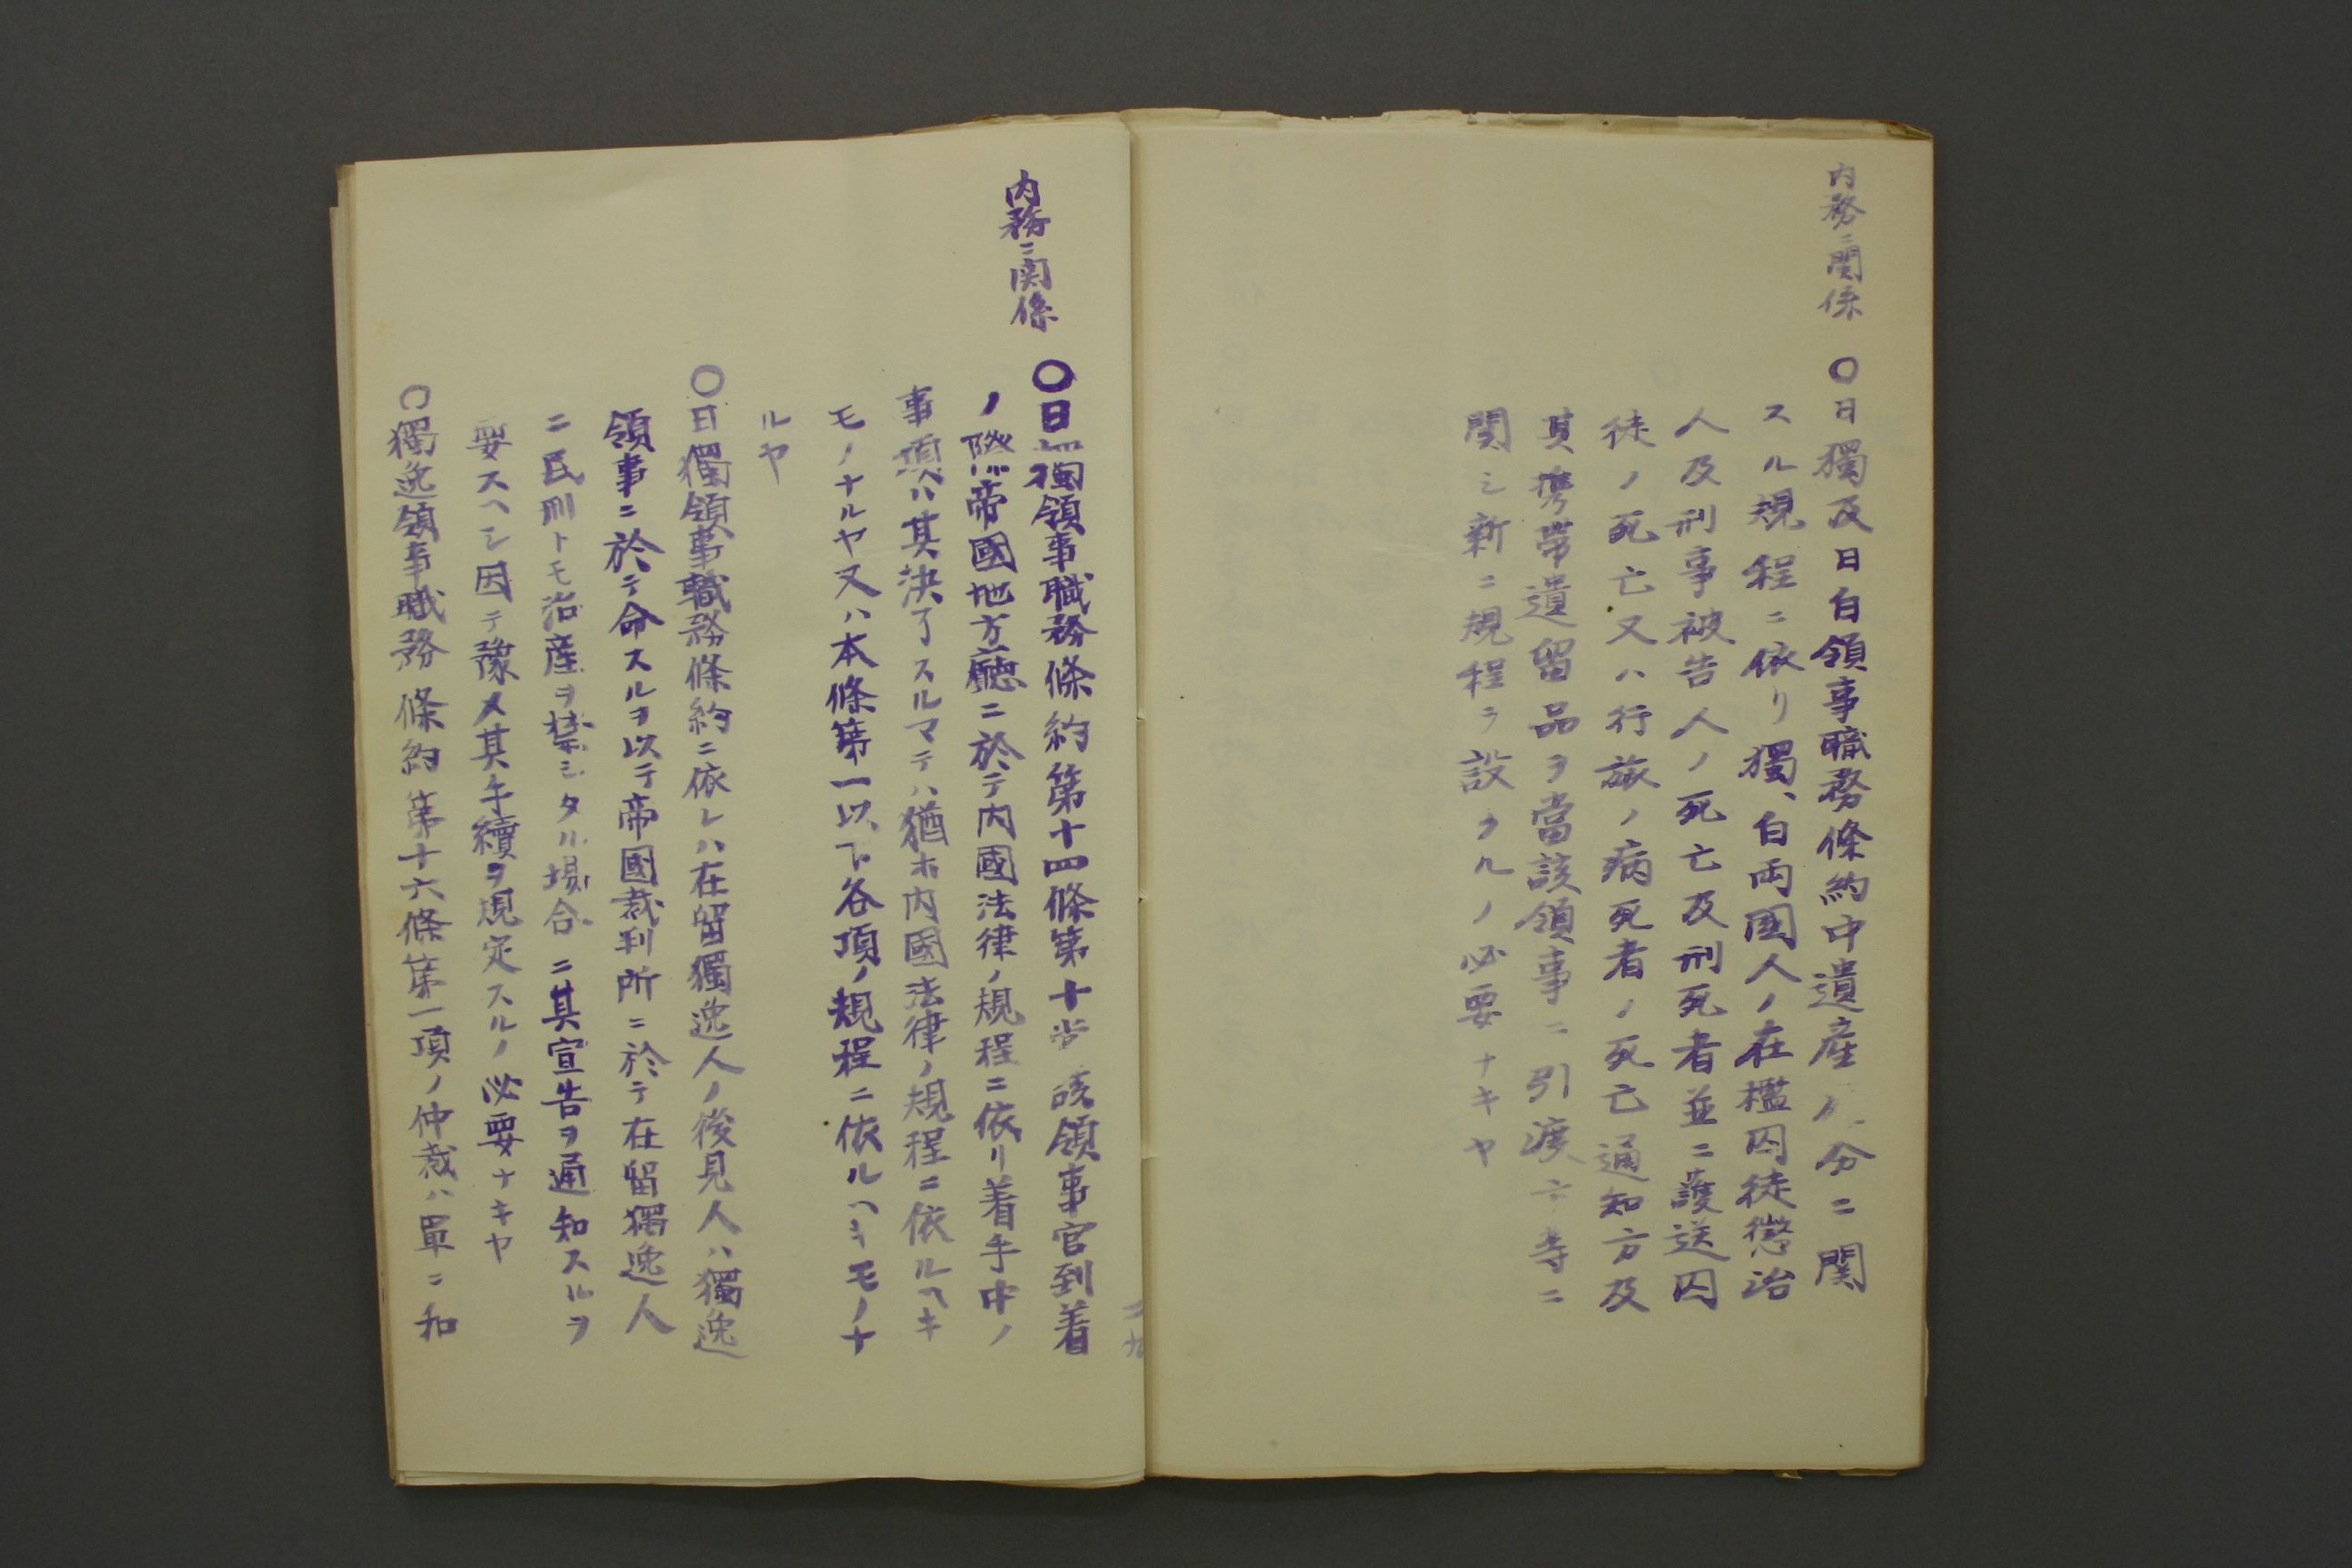 内務ニ関係
〇日獨及日白領事職務條約中遺産処分ニ関
スル規程ニ依リ獨、白両國人ノ在檻囚徒懲治
人及刑事被告人ノ死亡及刑死者並ニ護送囚
徒ノ死亡又ハ行旅ノ病死者ノ死亡通知方及
其携帯遺留品ヲ當該領事ニ引渡方等ニ
関シ新ニ規程ヲ設クルノ必要ナキヤ
内務ニ関係
〇日獨領事職務條約第十四條第十 該領事官到着
ノ際帝國地方廳ニ於テ内國法律ノ規程ニ依リ着手中ノ
事項ハ其決了スルマテハ猶ホ内國法律ノ規程ニ依ルヘキ
モノナルヤ又ハ本條第一以下各項ノ規程ニ依ルヘキモノナ
ルヤ
〇日獨領事職務條約ニ依レハ在留獨逸人ノ後見人ハ獨逸
領事ニ於テ命スルヲ以テ帝國裁判所ニ於テ在留獨逸人
ニ民刑トモ治産ヲ禁シタル場合ニ其宣告ヲ通知スルヲ
要スヘシ因テ豫メ其手續ヲ規定スルノ必要ナキヤ
〇獨逸領事職務條約第十六條第一項ノ仲裁ハ單ニ和
二九